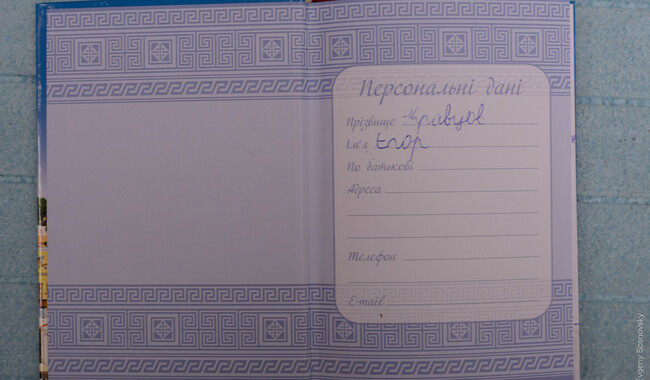 Персональні дані
Прізвище Кравцов
Ім'я Егор
По батькові
Адреса
Телефон
E-mail
Evgeny Sosnovsky